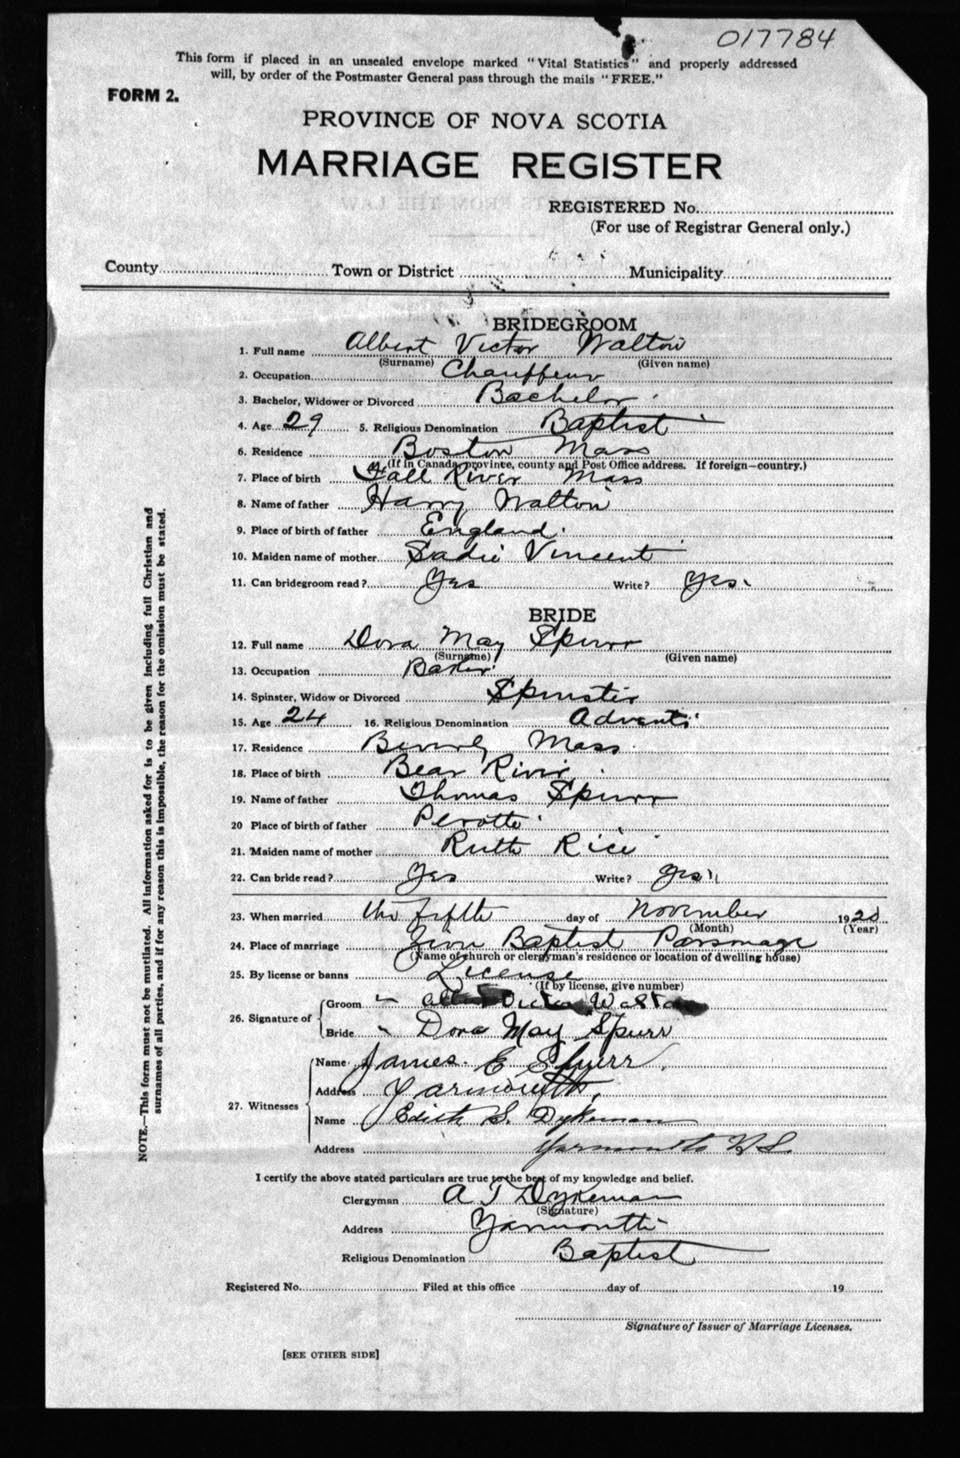 017784
This form if placed in an unsealed envelope marked "Vital Statistics" and properly addressed
will, by order of the Postmaster General pass through the mails "FREE."
FORM 2.
PROVINCE OF NOVA SCOTIA
MARRIAGE REGISTER
REGISTERED No.
(For use of Registrar General only.)
County Town or District Municipality
BRIDEGROOM
1. Full name Albert Victor Walton
(Surname) (Given name)
2. Occupation Chauffeur
3. Bachelor, Widower or Divorced Bachelor
4. Age 29 5. Religious Denomination Baptist
6. Residence Boston Mass
(If in Canada, province, county and Post Office address. If foreign—country.)
7. Place of birth Fall River Mass
8. Name of father Harry Walton
9. Place of birth of father England
10. Maiden name of mother Sadie Vincent
11. Can bridegroom read? Yes Write? Yes
BRIDE
12. Full name Dora May Spurr
(Surname) (Given name)
13. Occupation Baker
14. Spinster, Widow or Divorced Spinster
15. Age 24 16. Religious Denomination Advent
17. Residence Beverly Mass
18. Place of birth Bear River
19. Name of father Thomas Spurr
20 Place of birth of father Perotte
21. Maiden name of mother Ruth Rice
22. Can bride read? Yes Write? Yes
23. When married the fifth day of November 1920
(Month) (Year)
24. Place of marriage Zion Baptist Parsonage
(Name of church or clergyman's residence or location of dwelling house)
25. By license or banns License
(If by license, give number)
26. Signature of Groom Albert Victor Walton
Bride Dora May Spurr
27. Witnesses Name James E Spurr
Address Yarmouth
Name Edith S. Dykeman
Address Yarmouth N.S.
I certify the above stated particulars are true to the best of my knowledge and belief.
Clergyman A T Dykeman
(Signature)
Address Yarmouth
Religious Denomination Baptist
Registered No. Filed at this office day of 19
Signature of Issuer of Marriage Licenses.
[SEE OTHER SIDE]
NOTE.—This form must not be mutilated. All information asked for is to be given including full Christian and
surnames of all parties, and if for any reason this is impossible, the reason for the omission must be stated.